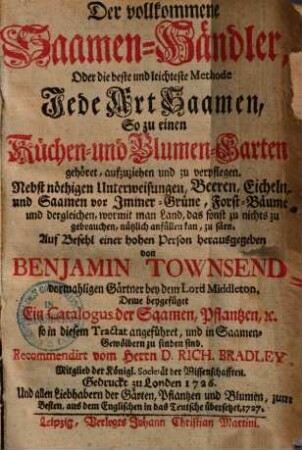 Der vollkommene
Saamen-Händler,
Oder die beste und leichteste Methode
Jede Art Saamen,
So zu einen
Küchen- und Blumen-Garten
gehöret, aufzuziehen und zu verpflegen.
Nebst nöthigen Unterweisungen, Beeren, Eicheln,
und Saamen vor Immer-Grüne, Forst-Bäume
und dergleichen, wormit man Land, das sonst zu nichts zu
gebrauchen, nützlich anfüllen kan, zu säen.
Auf Befehl einer hohen Person herausgegeben
von
BENJAMIN TOWNSEND
vormahligen Gärtner bey dem Lord Middleton,
Deme beygefüget
Ein Catalogus der Saamen, Pflantzen, ꝛc.
so in diesem Tractat angeführet, und in Saamen-
Gewölbern zu finden sind.
Recommendirt vom Herrn D. RICH. BRADLEY
Mitglied der Königl. Societät der Wissenschafften.
Gedruckt zu Londen 1726.
Und allen Liebhabern der Gärten, Pflantzen und Blumen, zum
Besten, aus dem Englischen in das Teutsche übersetzet, 1727.
Leipzig, Verlegts Johann Christian Martini.